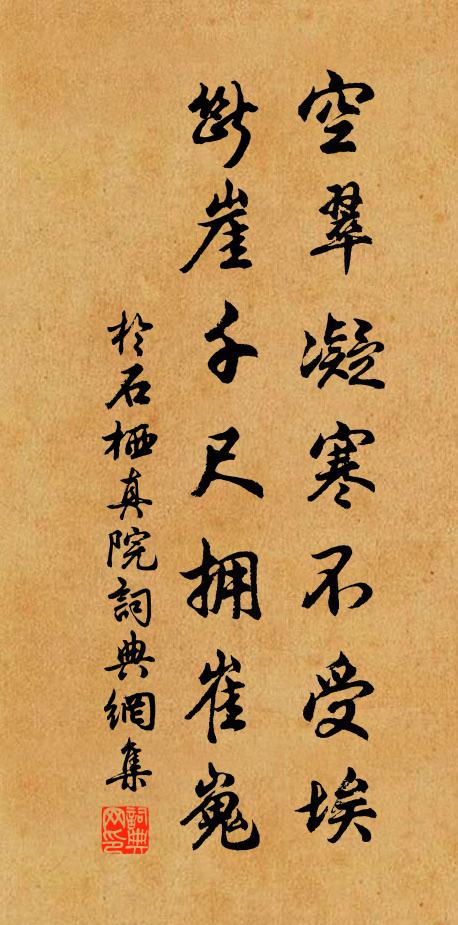 空翠凝寒不受埃
断崖千尺拥崔嵬
於石栖真院詞典網集
詞典
网印